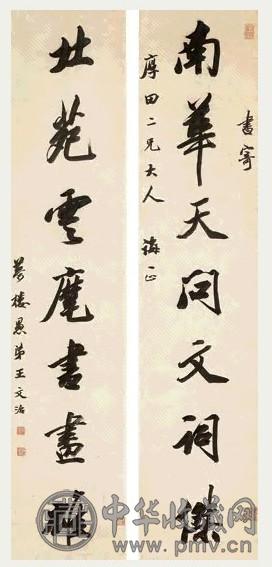 書寄
南華天問文詞傑
厚田二兄大人 誨正
北苑雲麾書畫
夢樓愚弟王文治
中华收藏网
www.pmv.cn